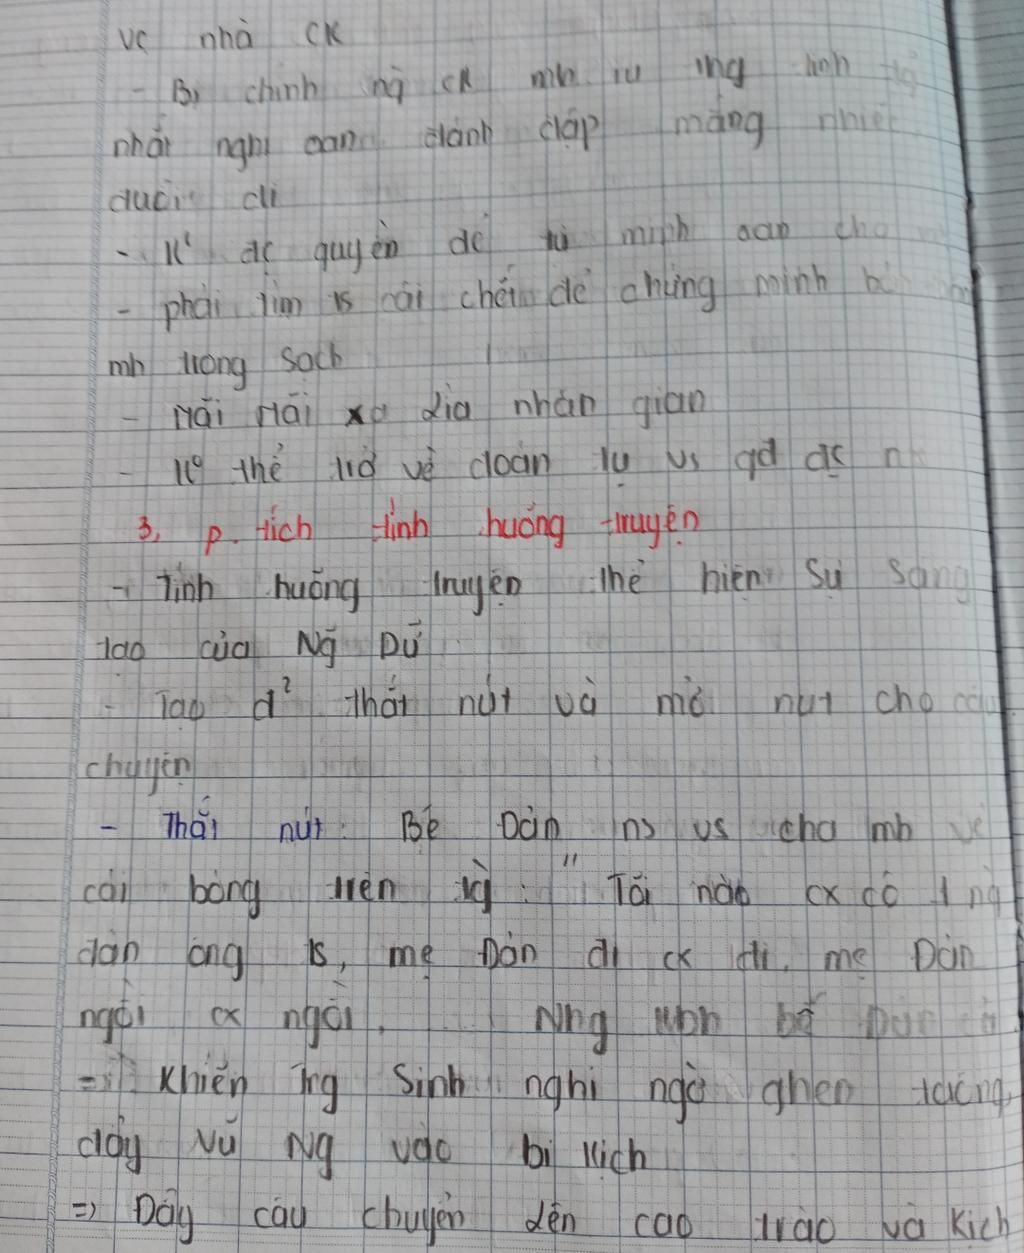 về nhà ck
- Bị chính ng ck mh iu thg
nhất nghi oan đánh đập mắng
đuổi đi
- K⁰ đc quyền để tự minh oan cho
- phải tìm ts cái chết để chứng minh
mh trong sạch
- Mãi Mãi xa lìa nhân gian
- K⁰ thể trở về đoàn tụ vs gđ đc
3, p. tích tình huống truyện
- Tình huống truyện thể hiện sự sáng
tạo của Ng̃ Dữ
- Tạo đ² thắt nút và mở nút cho câu
chuyện
- Thắt nút: Bé Đản ns vs cha mh về
cái bóng trên tg: " Tối nào cx có 1 ng
đàn ông ts, mẹ Đản đi cx đi, mẹ Đản
ngồi cx ngồi, Nhg bế Đản
=> Khiến Trg Sinh nghi ngờ ghen tuông,
đẩy Vũ Ng vào bi kịch
=> Đẩy câu chuyện lên cao trào và kịch